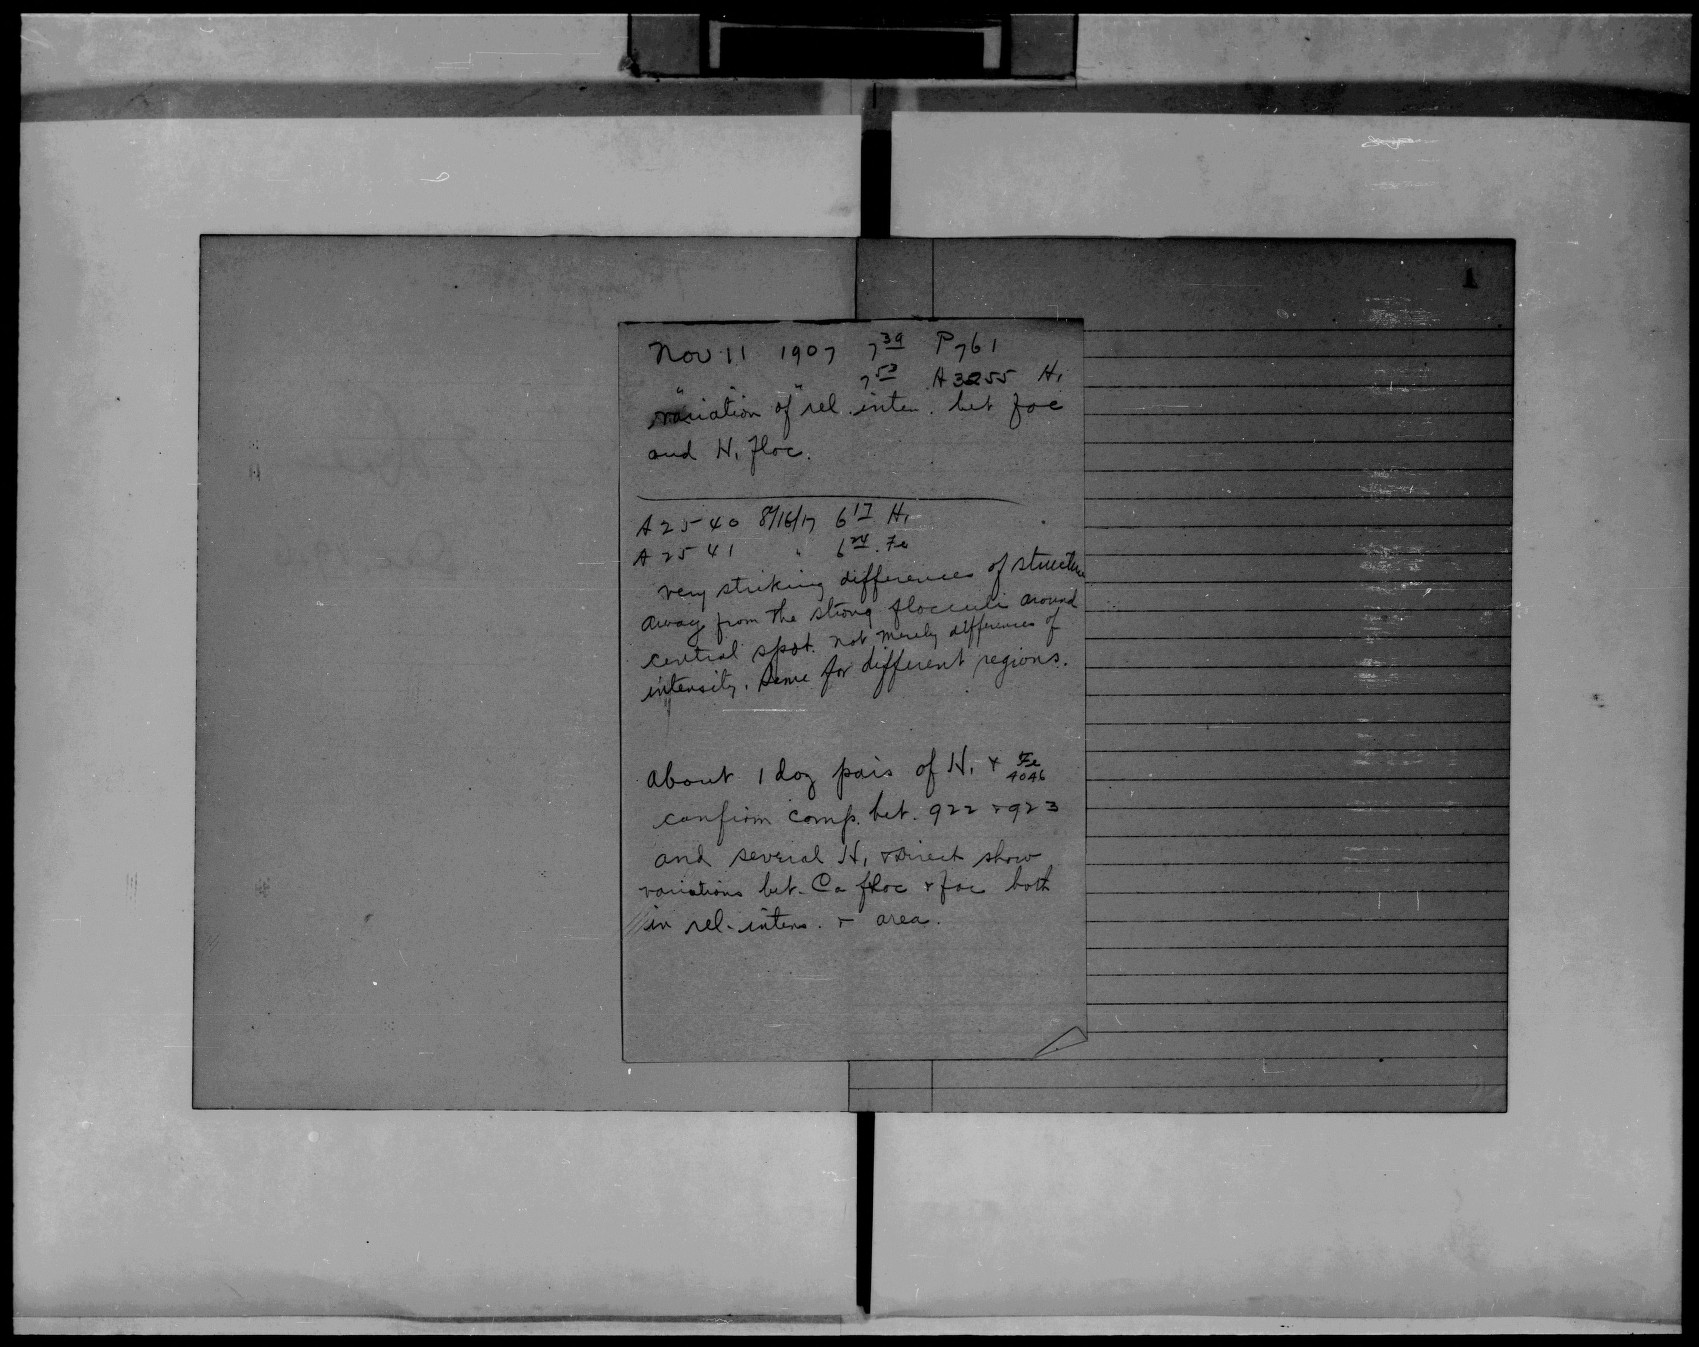 1
Nov 11 1907 7 39 P761
7 53 A3255 H1
"variation of" rel. inten. bet fac
and H1 floc.
A2540 8/16/07 6 17 H1
A2541 " 6 24 Fe
very striking differences of structure
away from the strong flocculi around
central spot. not merely differences of
intensity. Same for different regions.
About 1 doz pairs of H1 + Fe
4046
confirm comp. bet. 922 + 923
and several H1 + direct show
variations bet. Ca floc + fac both
in rel. intens. + area.